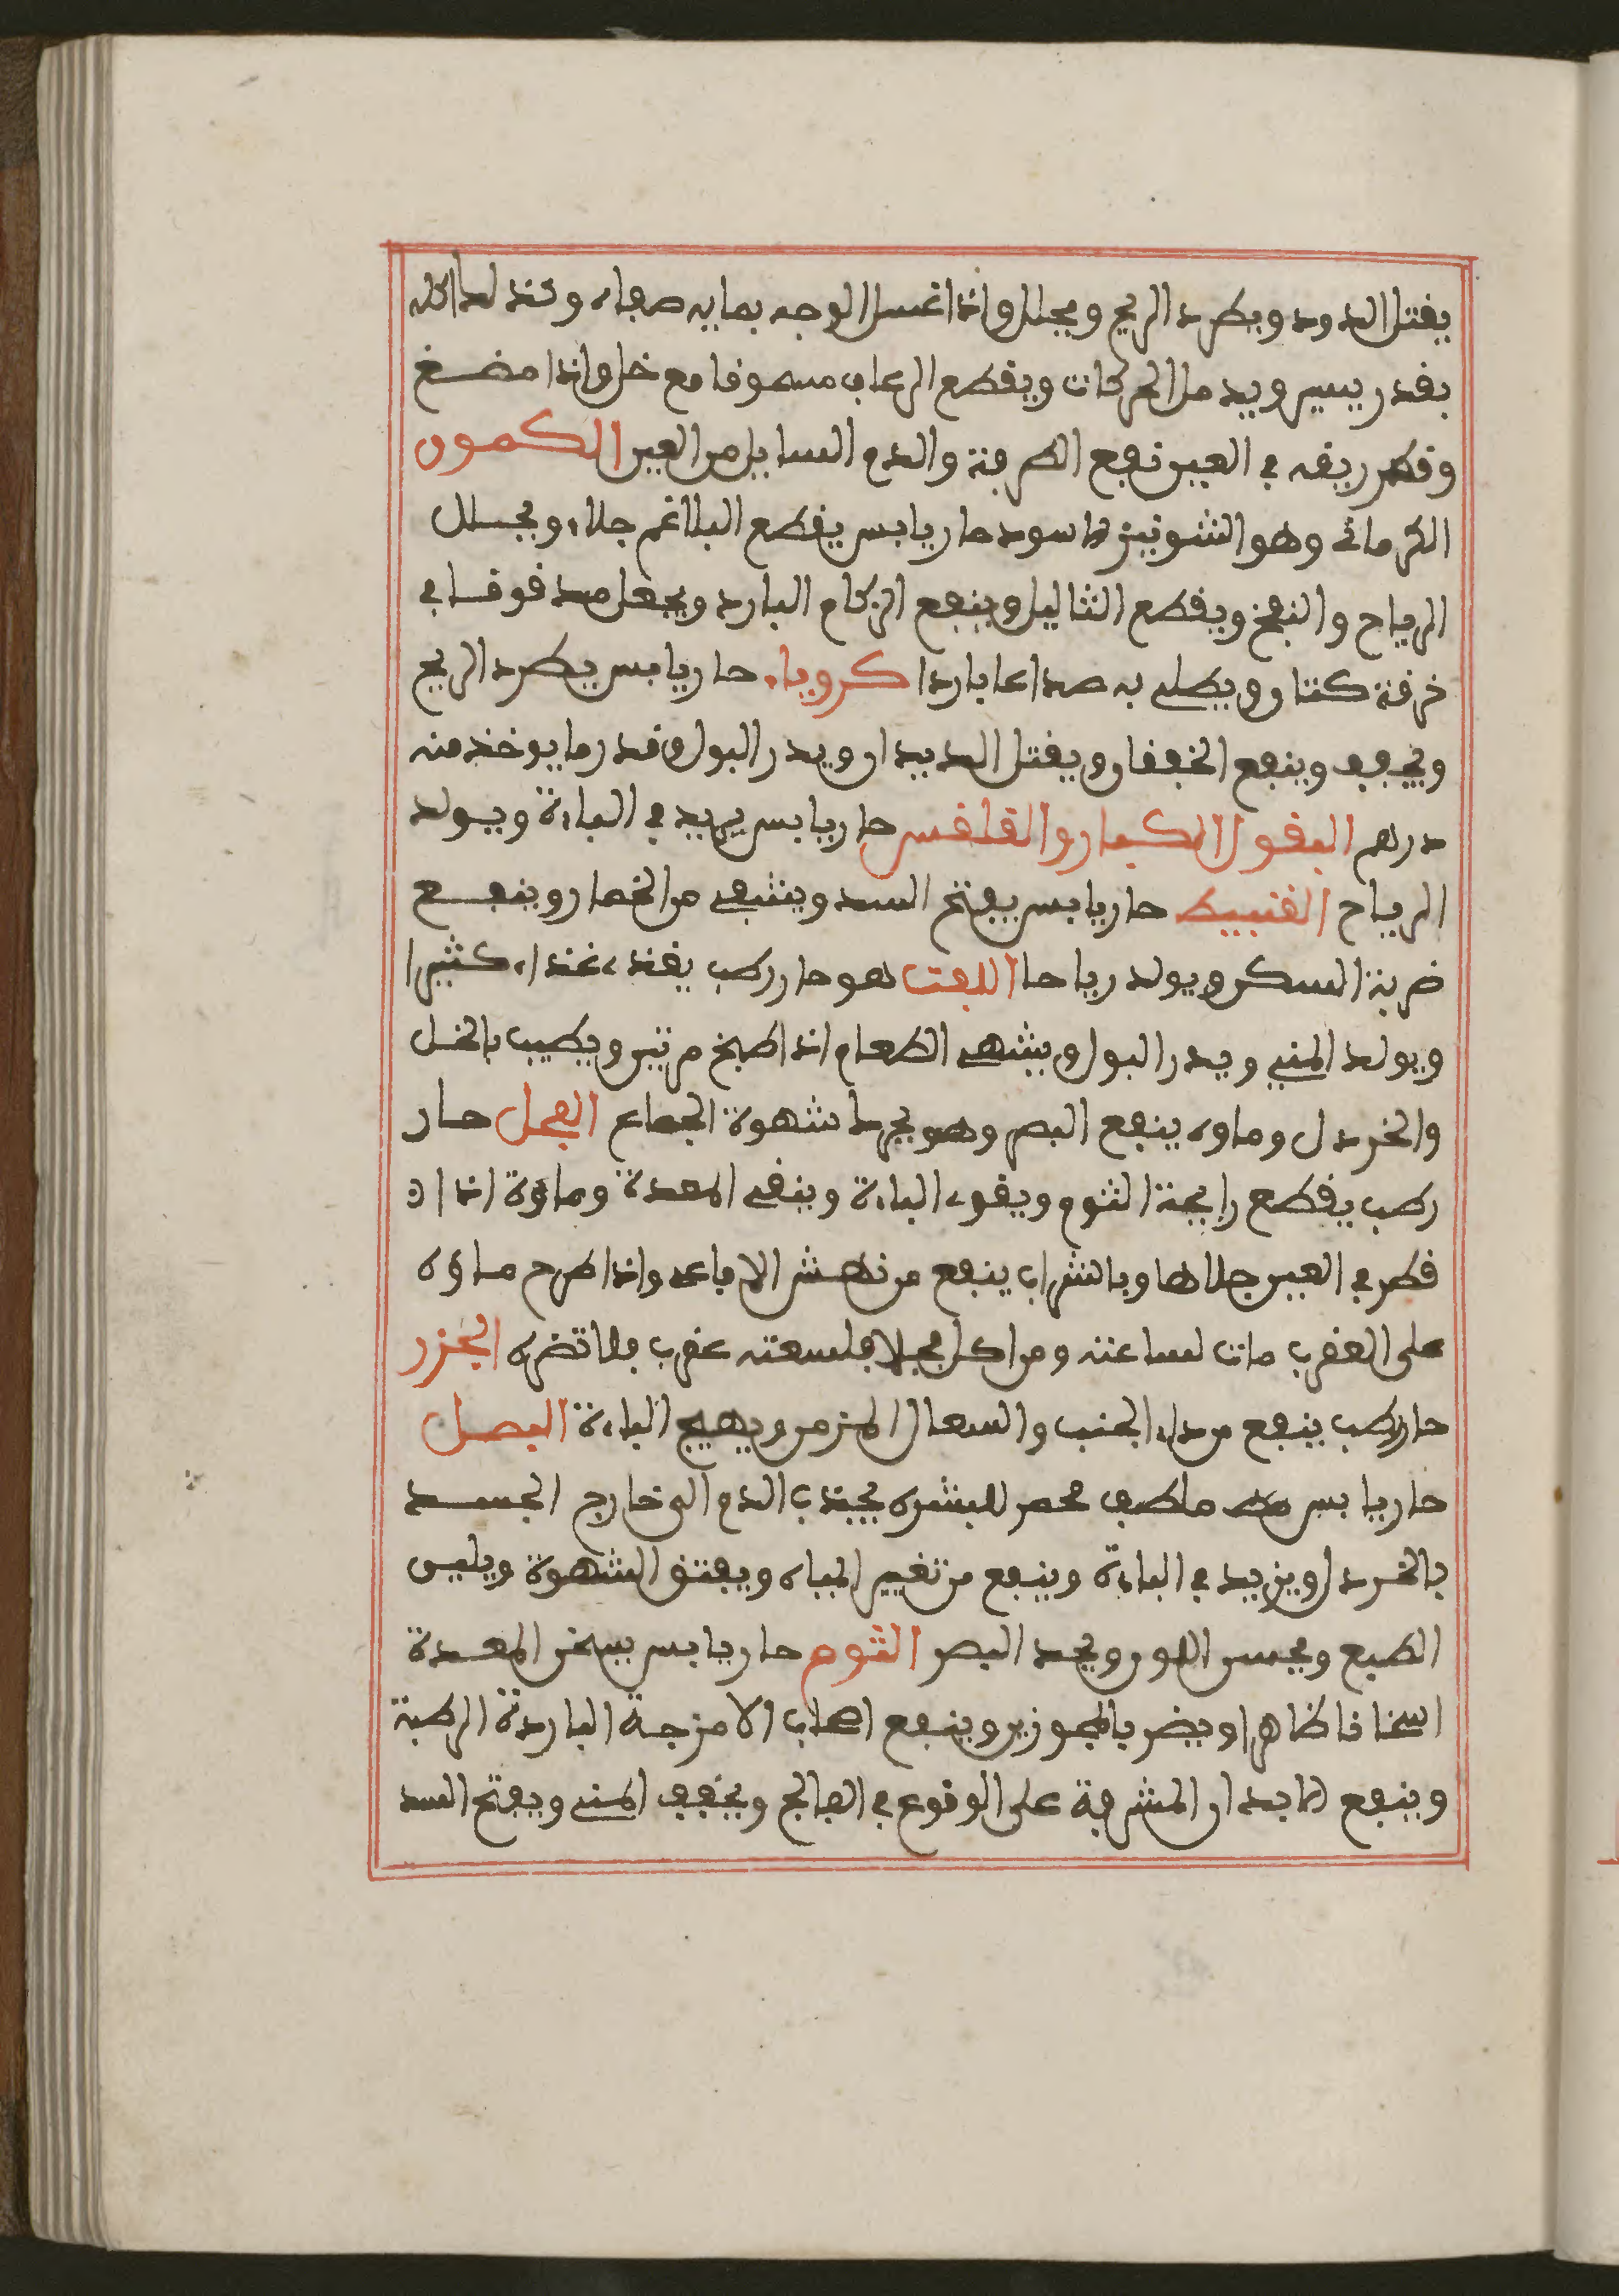 يقتل الدود ويطرد الريح ويحلل واذا غسل الوجه بمايه صفاه وكذلك اكله
بقدر يسير ويدمل الحركات ويقطع الرعاف مسحوقا مع خل واذا مضغ
وقطر ريقه في العين نفع الطرفة والدم السايل من العين الكمون
الكرماني وهو الشونيز الاسود حار يابس يقطع البلاغم جلاء ويحلل
الرياح والنفخ ويقطع الثاليل وينفع الزكام البارد ويجعل مدقوقا في
خرقة كتان ويطلى به صداعا باردا كرويا، حار يابس يطرد الريح
ويجفف وينفع الخفقان ويقتل الديدان ويدر البول وقدر ما يوخذ منه
درهم البقول الكبار والقلقس حار يابس يزيد في الباءة ويولد
الرياح القنبيط حار يابس يفتح السدد ويشفي من الخمار وينفع
ضربة السكر ويولد رياحا اللفت هو حار رطب يغذي غذاء كثيرا
ويولد المني ويدر البول ويشهي الطعام اذا طبخ مرتين ويطيب بالخل
والخردل وماوه ينفع البصر وهو يحرك شهوة الجماع الفجل حار
رطب يقطع رايحة الثوم ويقوي الباءة وينقي المعدة وماؤه اذا ا
قطر في العين جلاها وبالشراب ينفع من نهش الافاعي واذا طرح ماؤه
على العقرب مات لساعته ومن اكل فجلا فلسعته عقرب فلا تضره الجزر
حار رطب ينفع من داء الجنب والسعال المزمن ويهيج الباءة البصل
حار يابس ملطف محمر للبشرة يجذب الدم الى خارج الجسد
بالخردل ويزيد في الباءة وينفع من تغيير المياه ويفتق الشهوة ويلين
الطبع ويحسن اللون ويحد البصر الثوم حار يابس يسخن المعدة
اسخانا ظاهرا ويضر بالمحرورين وينفع اصحاب الامزجة الباردة الرطبة
وينفع الابدان المشرفة على الوقوع في الفالج ويجفف المني ويفتح السدد